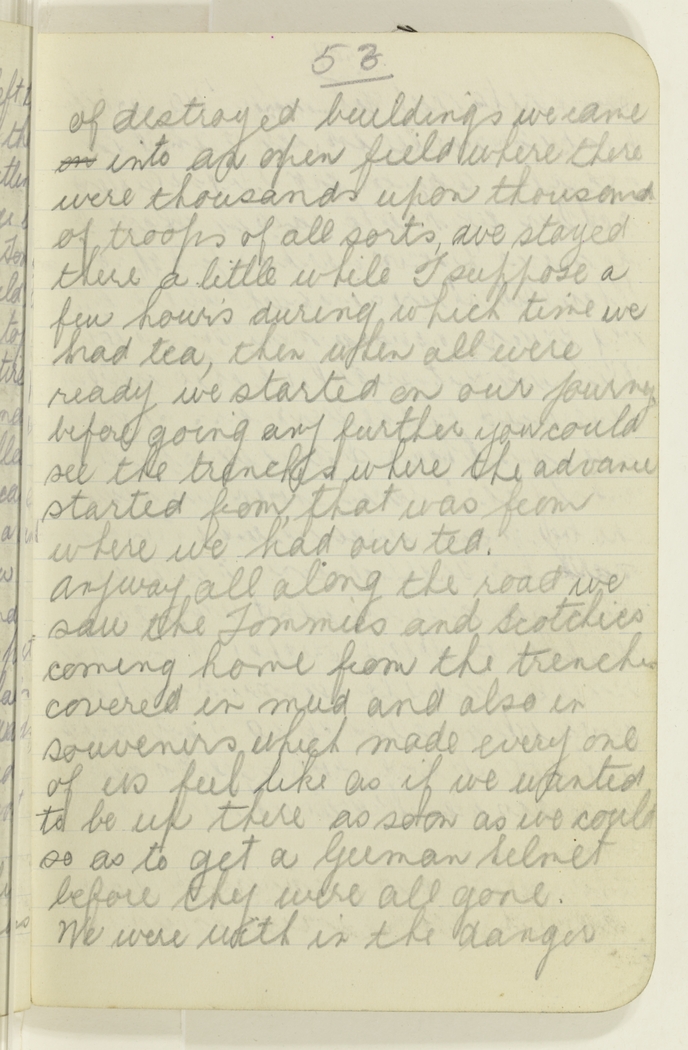 53
of destroyed buildings we came
on into an open field where there
were thousands upon thousand
of troops of all sorts, we stayed
there a little while I suppose a
few hours during which time we
had tea, then when all were
ready we started on our journey
before going any further you could
see the trenches where the advance
started from, that was from
where we had our tea.
Anyway all along the road we
saw the Tommies and Scotchies
coming home from the trenches
covered in mud and also in
souvenirs which made every one
of us feel like as if we wanted
to be up there as soon as we could
so as to get a German helmet
before they were all gone.
We were with in the danger